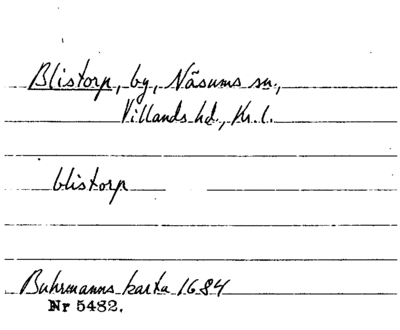 Blistorp, by, Näsums sn.,
Villands hd., Kr. l.
blistorp
Buhrmanns karta 1684
Nr 5482.